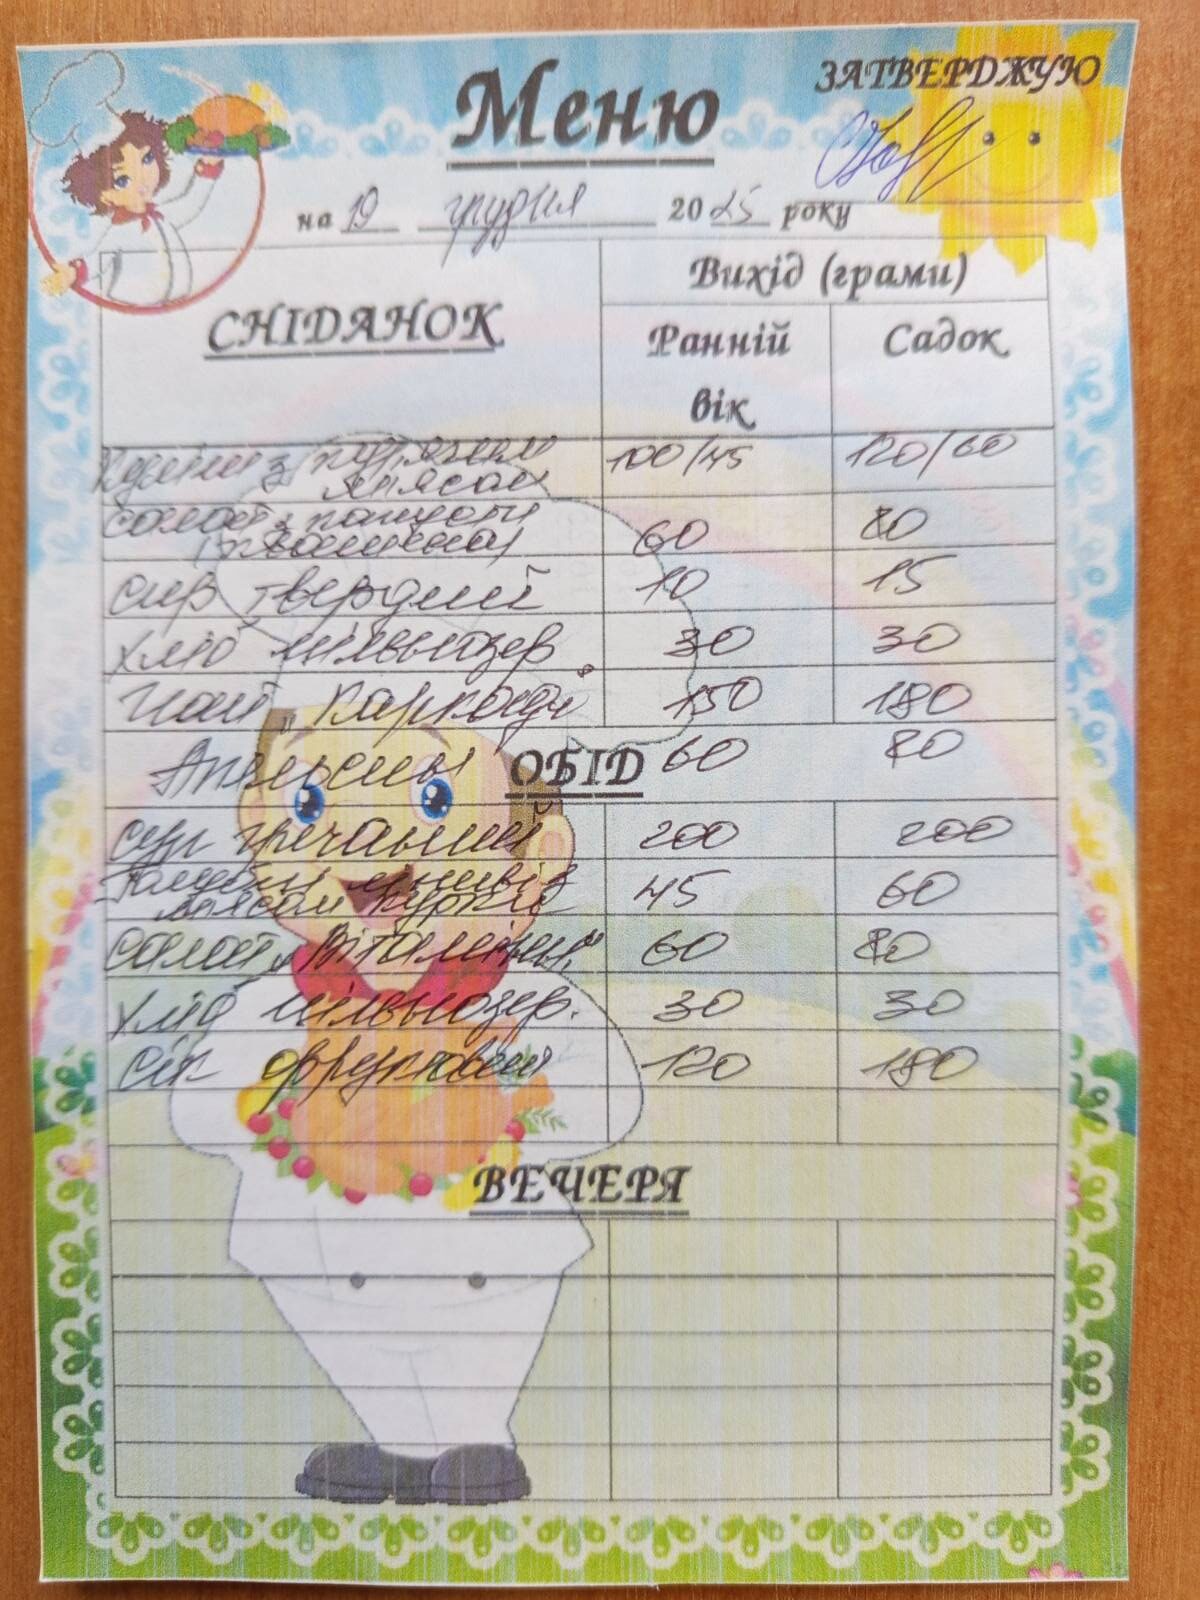 Меню
ЗАТВЕРДЖУЮ
на 19 грудня 2025 року
СНІДАНОК
Вихід (грами)
Ранній вік
Садок
з курячим 100/45 120/60
м'ясом
салат з капусти
60 80
сир твердий 10 15
хліб цільнозер. 30 30
Чай "Каркаде" 150 180
Апельсини 60 80
ОБІД
суп гречаний 200 200
ліниві з 45 60
м'ясом курки
салат "Вітамінний" 60 80
хліб цільнозер. 30 30
сік фруктовий 120 180
ВЕЧЕРЯ